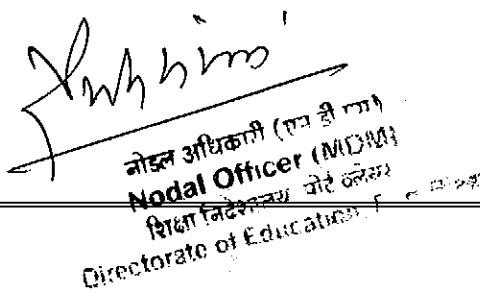 नोडल अधिकारी (एम डी एम)
Nodal Officer (MDM)
शिक्षा निदेशालय पोर्ट ब्लेयर
Directorate of Education,